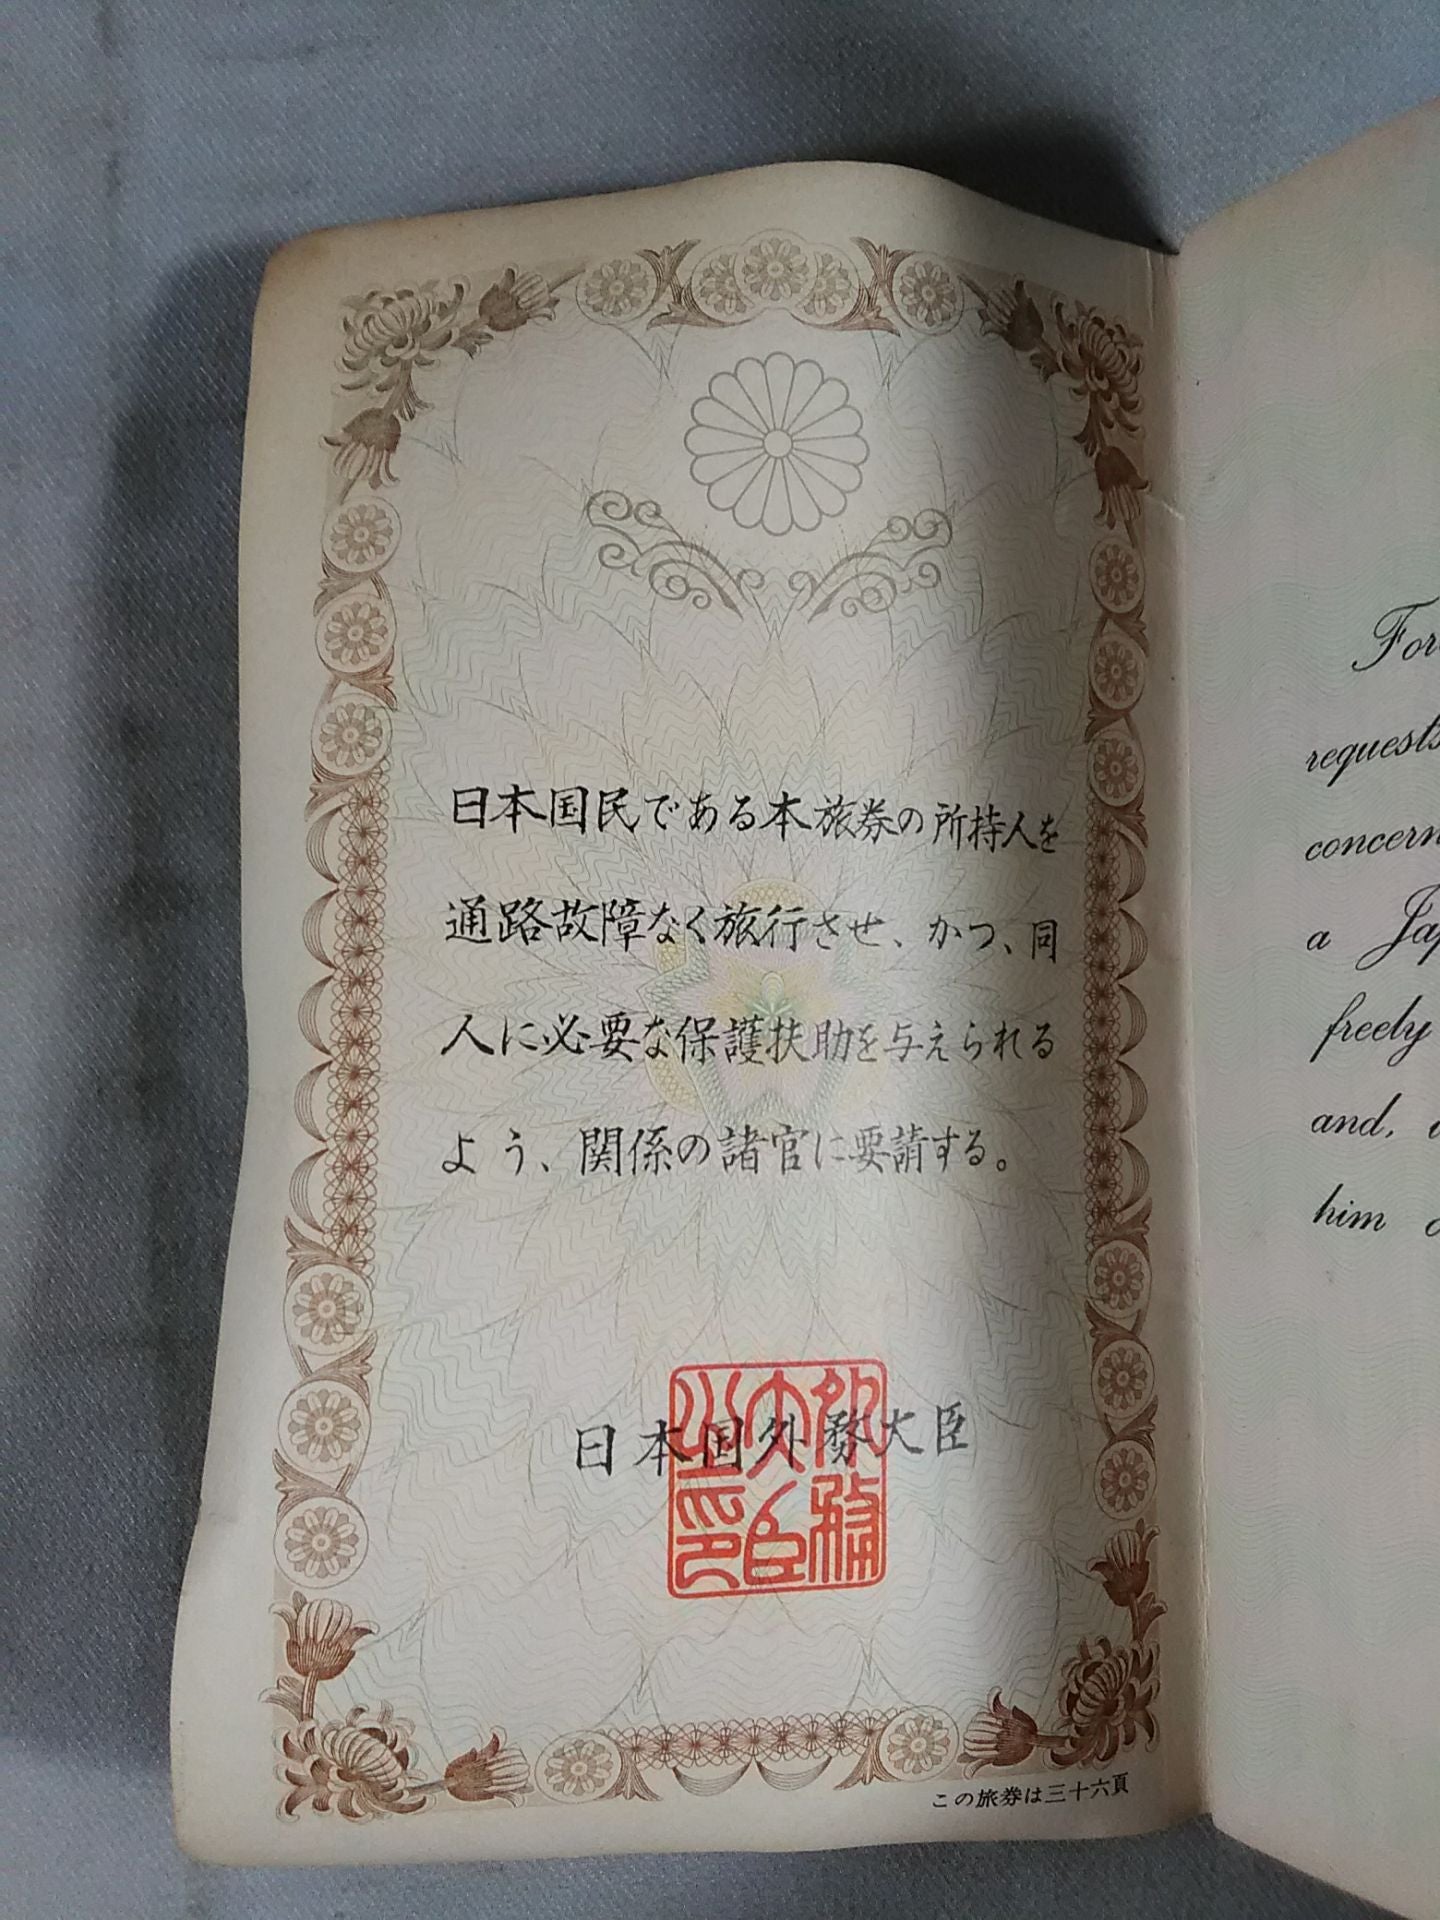 日本国民である本旅券の所持人を
通路故障なく旅行させ、かつ、同
人に必要な保護扶助を与えられる
よう、関係の諸官に要請する。
日本国外務大臣
外務
大臣
之印
この旅券は三十六頁
requests
concern
a Jap
freely
and,
him